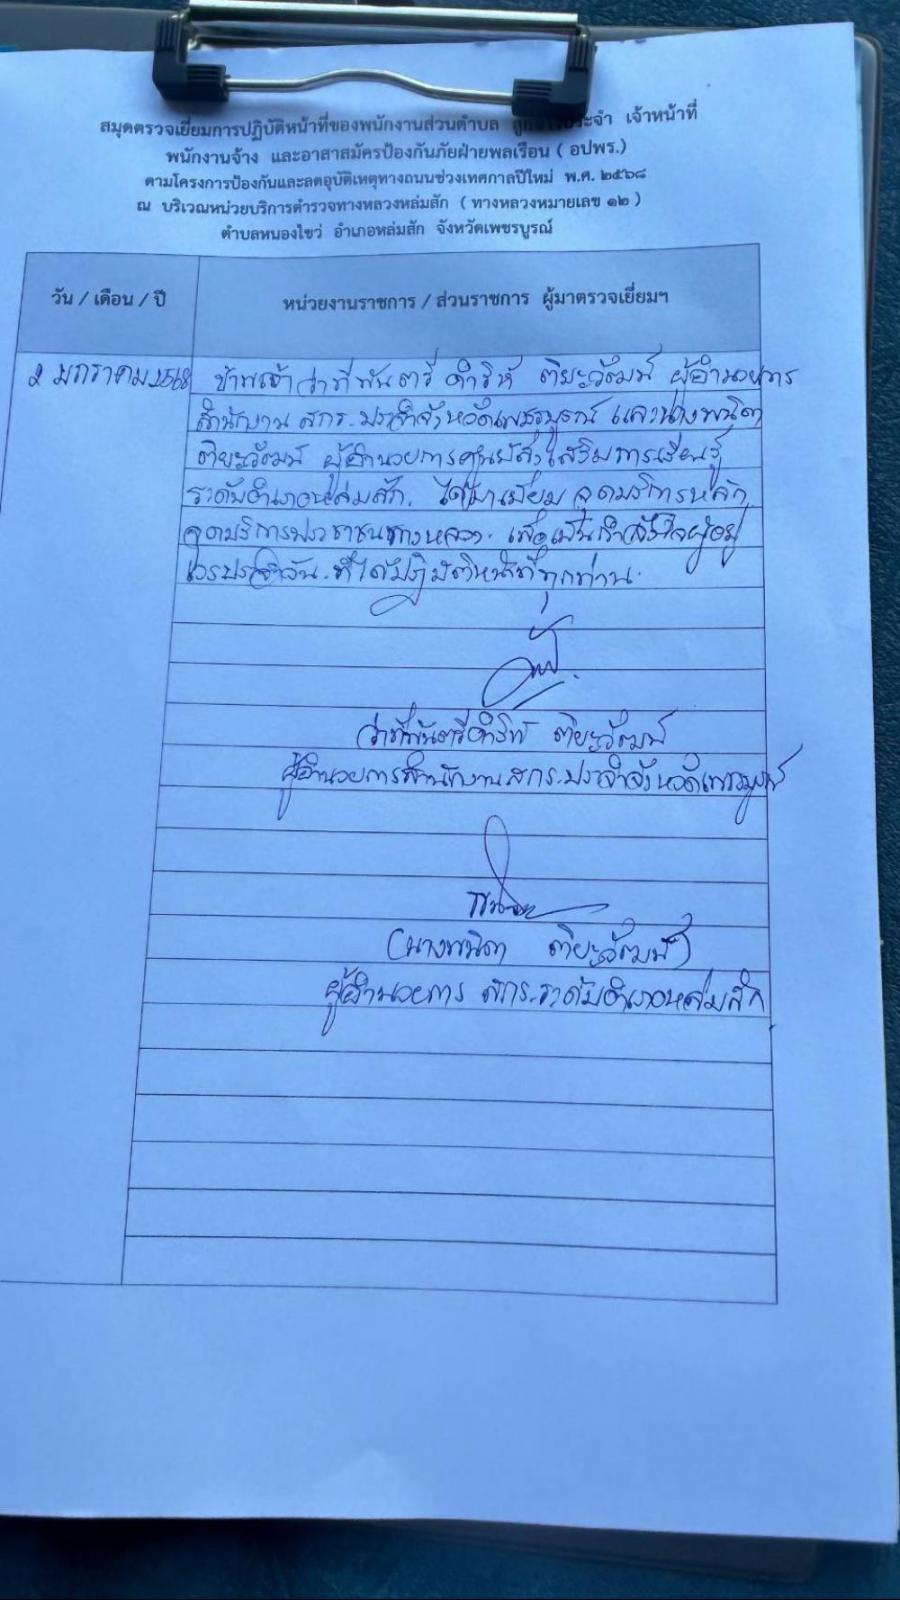 สมุดตรวจเยี่ยมการปฏิบัติหน้าที่ของพนักงานส่วนตำบล ประจำ เจ้าหน้าที่
พนักงานจ้าง และอาสาสมัครป้องกันภัยฝ่ายพลเรือน ( อปพร.)
ตามโครงการป้องกันและลดอุบัติเหตุทางถนนช่วงเทศกาลปีใหม่ พ.ศ. ๒๕๖๘
ณ บริเวณหน่วยบริการตำรวจทางหลวงหล่มสัก ( ทางหลวงหมายเลข ๑๒ )
ตำบลหนองไขว่ อำเภอหล่มสัก จังหวัดเพชรบูรณ์
วัน / เดือน / ปี
หน่วยงานราชการ / ส่วนราชการ ผู้มาตรวจเยี่ยมฯ
2 มกราคม 2568
ข้าพเจ้า ว่าที่พันตรี ดำริห์ ติยะวัฒน์ ผู้อำนวยการ
สำนักงาน สกร. ประจำจังหวัดเพชรบูรณ์ และนางพนิดา
ติยะวัฒน์ ผู้อำนวยการศูนย์ส่งเสริมการเรียนรู้
ระดับอำเภอหล่มสัก. ได้มาเยี่ยม จุดบริการหลัก
จุดบริการประชาชนทางหลวง. เพื่อเป็นกำลังใจผู้อยู่
เวรประจำวัน. ที่ได้ปฏิบัติหน้าที่ทุกท่าน.
ว่าที่พันตรีดำริห์ ติยะวัฒน์
ผู้อำนวยการสำนักงาน สกร. ประจำจังหวัดเพชรบูรณ์
(นางพนิดา ติยะวัฒน์)
ผู้อำนวยการ สกร. ระดับอำเภอหล่มสัก